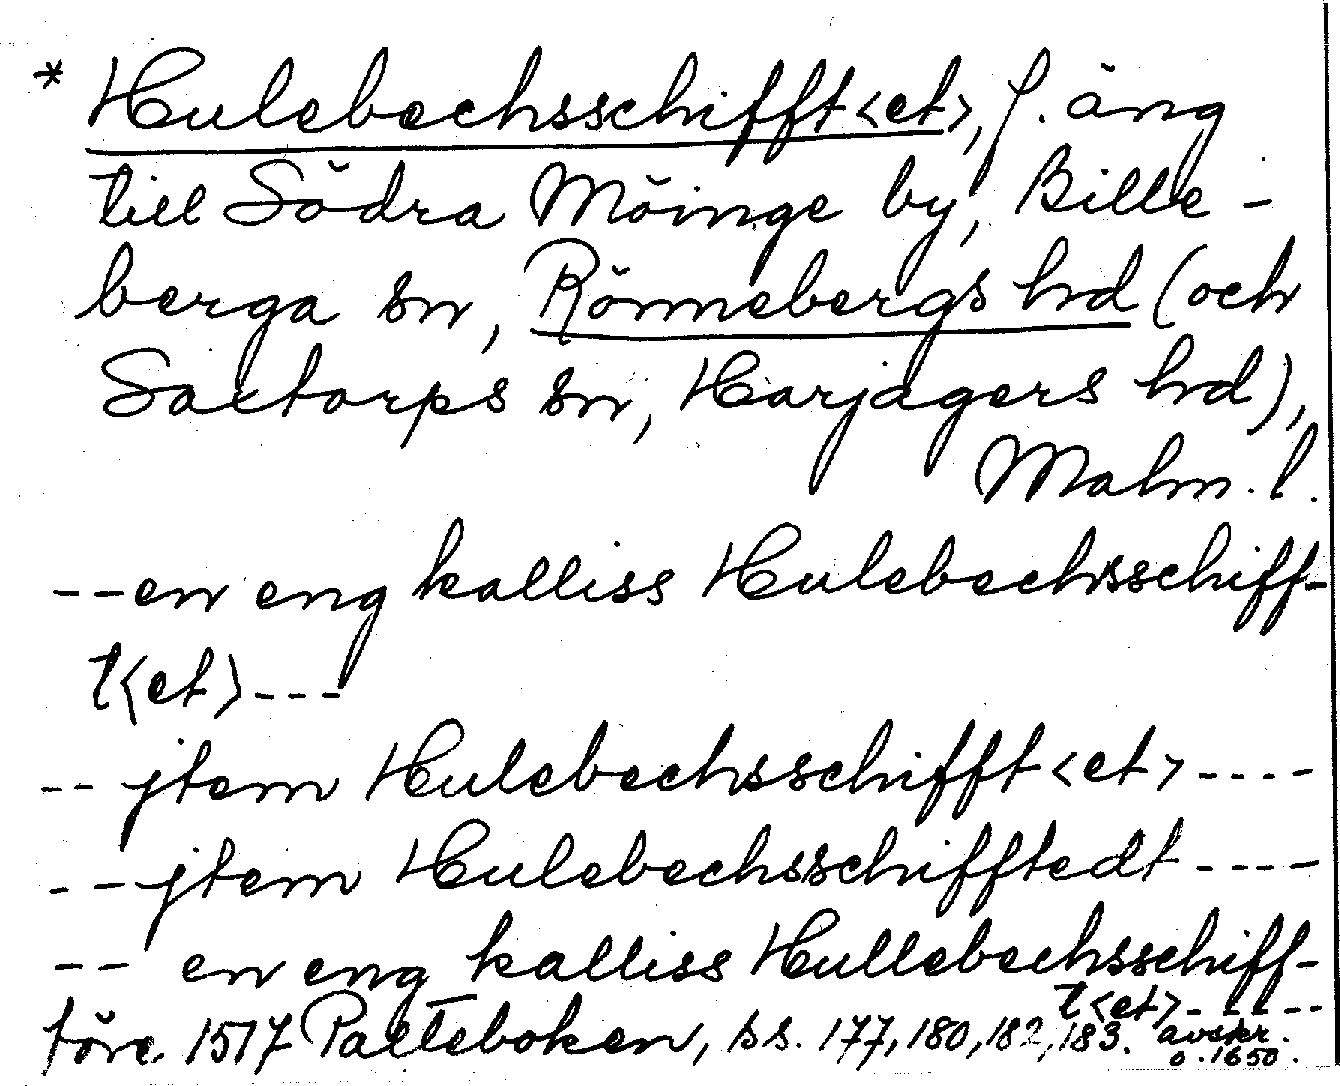 * Hulebechsschifft<et>, f. äng
till Södra Möinge by, Bille-
berga sn, Rönnebergs hrd (och
Saxtorps sn, Harjagers hrd),
Malm. l.
--en eng kalliss Hulebechsschiff-
t<et>---
-- jtem Hulebechsschifft<et>----
--jtem Hulebechsschifftedt----
-- en eng kalliss Hullebechsschiff-
t<et>-----
före 1517 Palteboken, ss. 177, 180, 182, 183. avskr.
o. 1650.